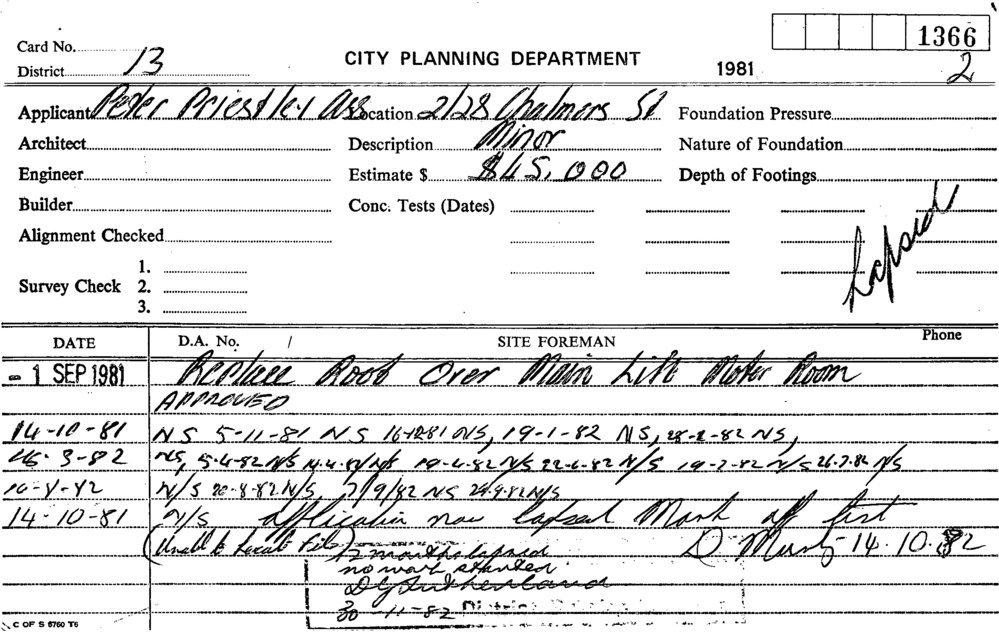 1366
Card No.
CITY PLANNING DEPARTMENT
District 13
1981
2
Applicant Peter Priestley Ass Location 2/28 Chalmers St Foundation Pressure
Architect Description Minor Nature of Foundation
Engineer Estimate $ $45,000 Depth of Footings
Builder Conc. Tests (Dates)
Alignment Checked
Lapsed
1.
Survey Check 2.
3.
DATE D.A. No. / SITE FOREMAN Phone
- 1 SEP 1981 Replace Roof Over Main Lift Motor Room
APPROVED
14-10-81 NS 5-11-81 NS 16-12-81 NS, 19-1-82 NS, 28-2-82 NS,
3-82 NS, 5-4-82 N/S 14-4-82 N/S 19-4-82 N/S 22-6-82 N/S 19-7-82 N/S 26-7-82 N/S
N/S 20-8-82 N/S 7/9/82 NS 29-9-82 N/S
14-10-81 N/S application now lapsed Mark off list
(Unable to Locate File) D 14.10.82
12 months lapsed
no work started
D G Sutherland
30-11-82 District
C OF S 6760 T6